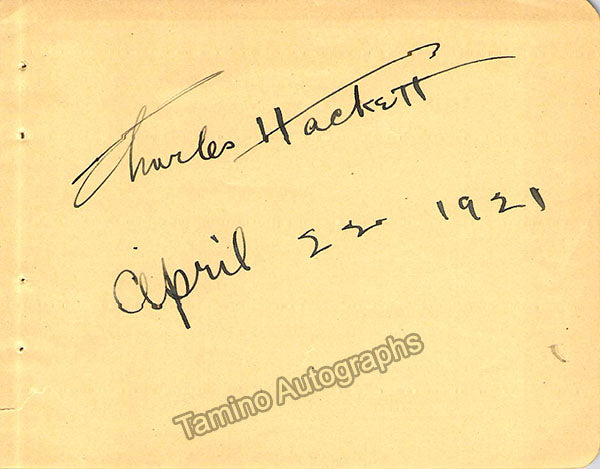 Charles Hackett
April 22 1921
Tamino Autographs